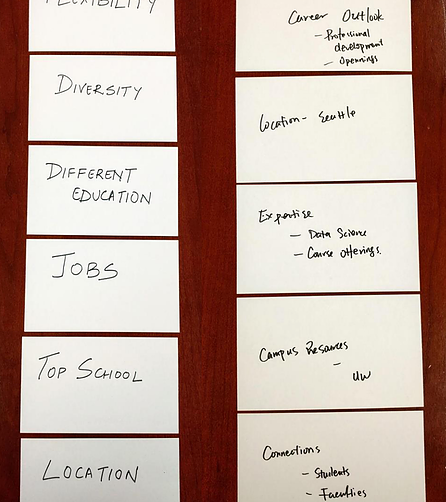 FLEXIBILITY
DIVERSITY
DIFFERENT
EDUCATION
JOBS
TOP SCHOOL
LOCATION
Career Outlook
- Professional
development
- Opennings
Location - Seattle
Expertise
- Data Science
- Course Offerings.
Campus Resources
-
UW
Connections
- Students
- Faculties